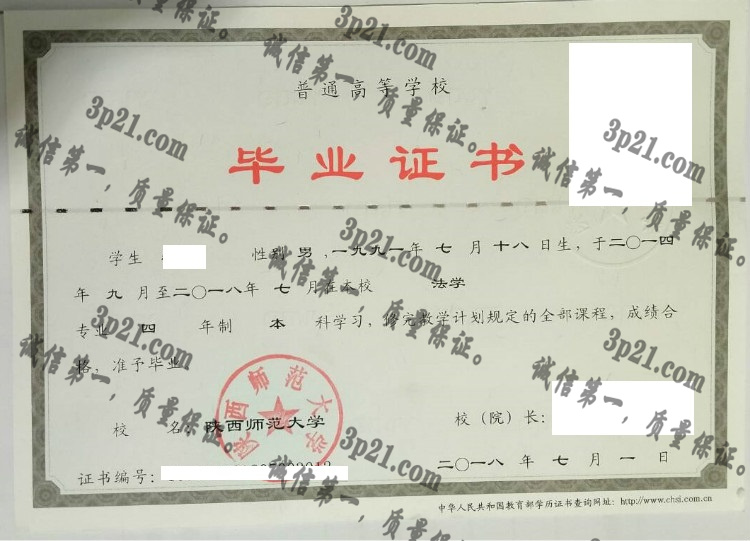 普通高等学校
毕业证书
学生 性别 男 ,一九九一年 七 月 十八 日生, 于二〇一四
年 九 月至二〇一八年 七 月在本校 法学
专业 四 年制 本 科学习, 修完教学计划规定的全部课程, 成绩合
格, 准予毕业
校 名: 陕西师范大学
陕西师范大学
校（院）长:
二〇一八 年 七 月 一 日
证书编号:
中华人民共和国教育部学历证书查询网址: http://www.chsi.com.cn
3p21.com
诚信第一，质量保证。
3p21.com
诚信第一，质量保证。
3p21.com
诚信第一，质量保证。
3p21.com
诚信第一，质量保证。
3p21.com
诚信第一，质量保证。
3p21.com
诚信第一，质量保证。
3p21.com
诚信第一，质量保证。